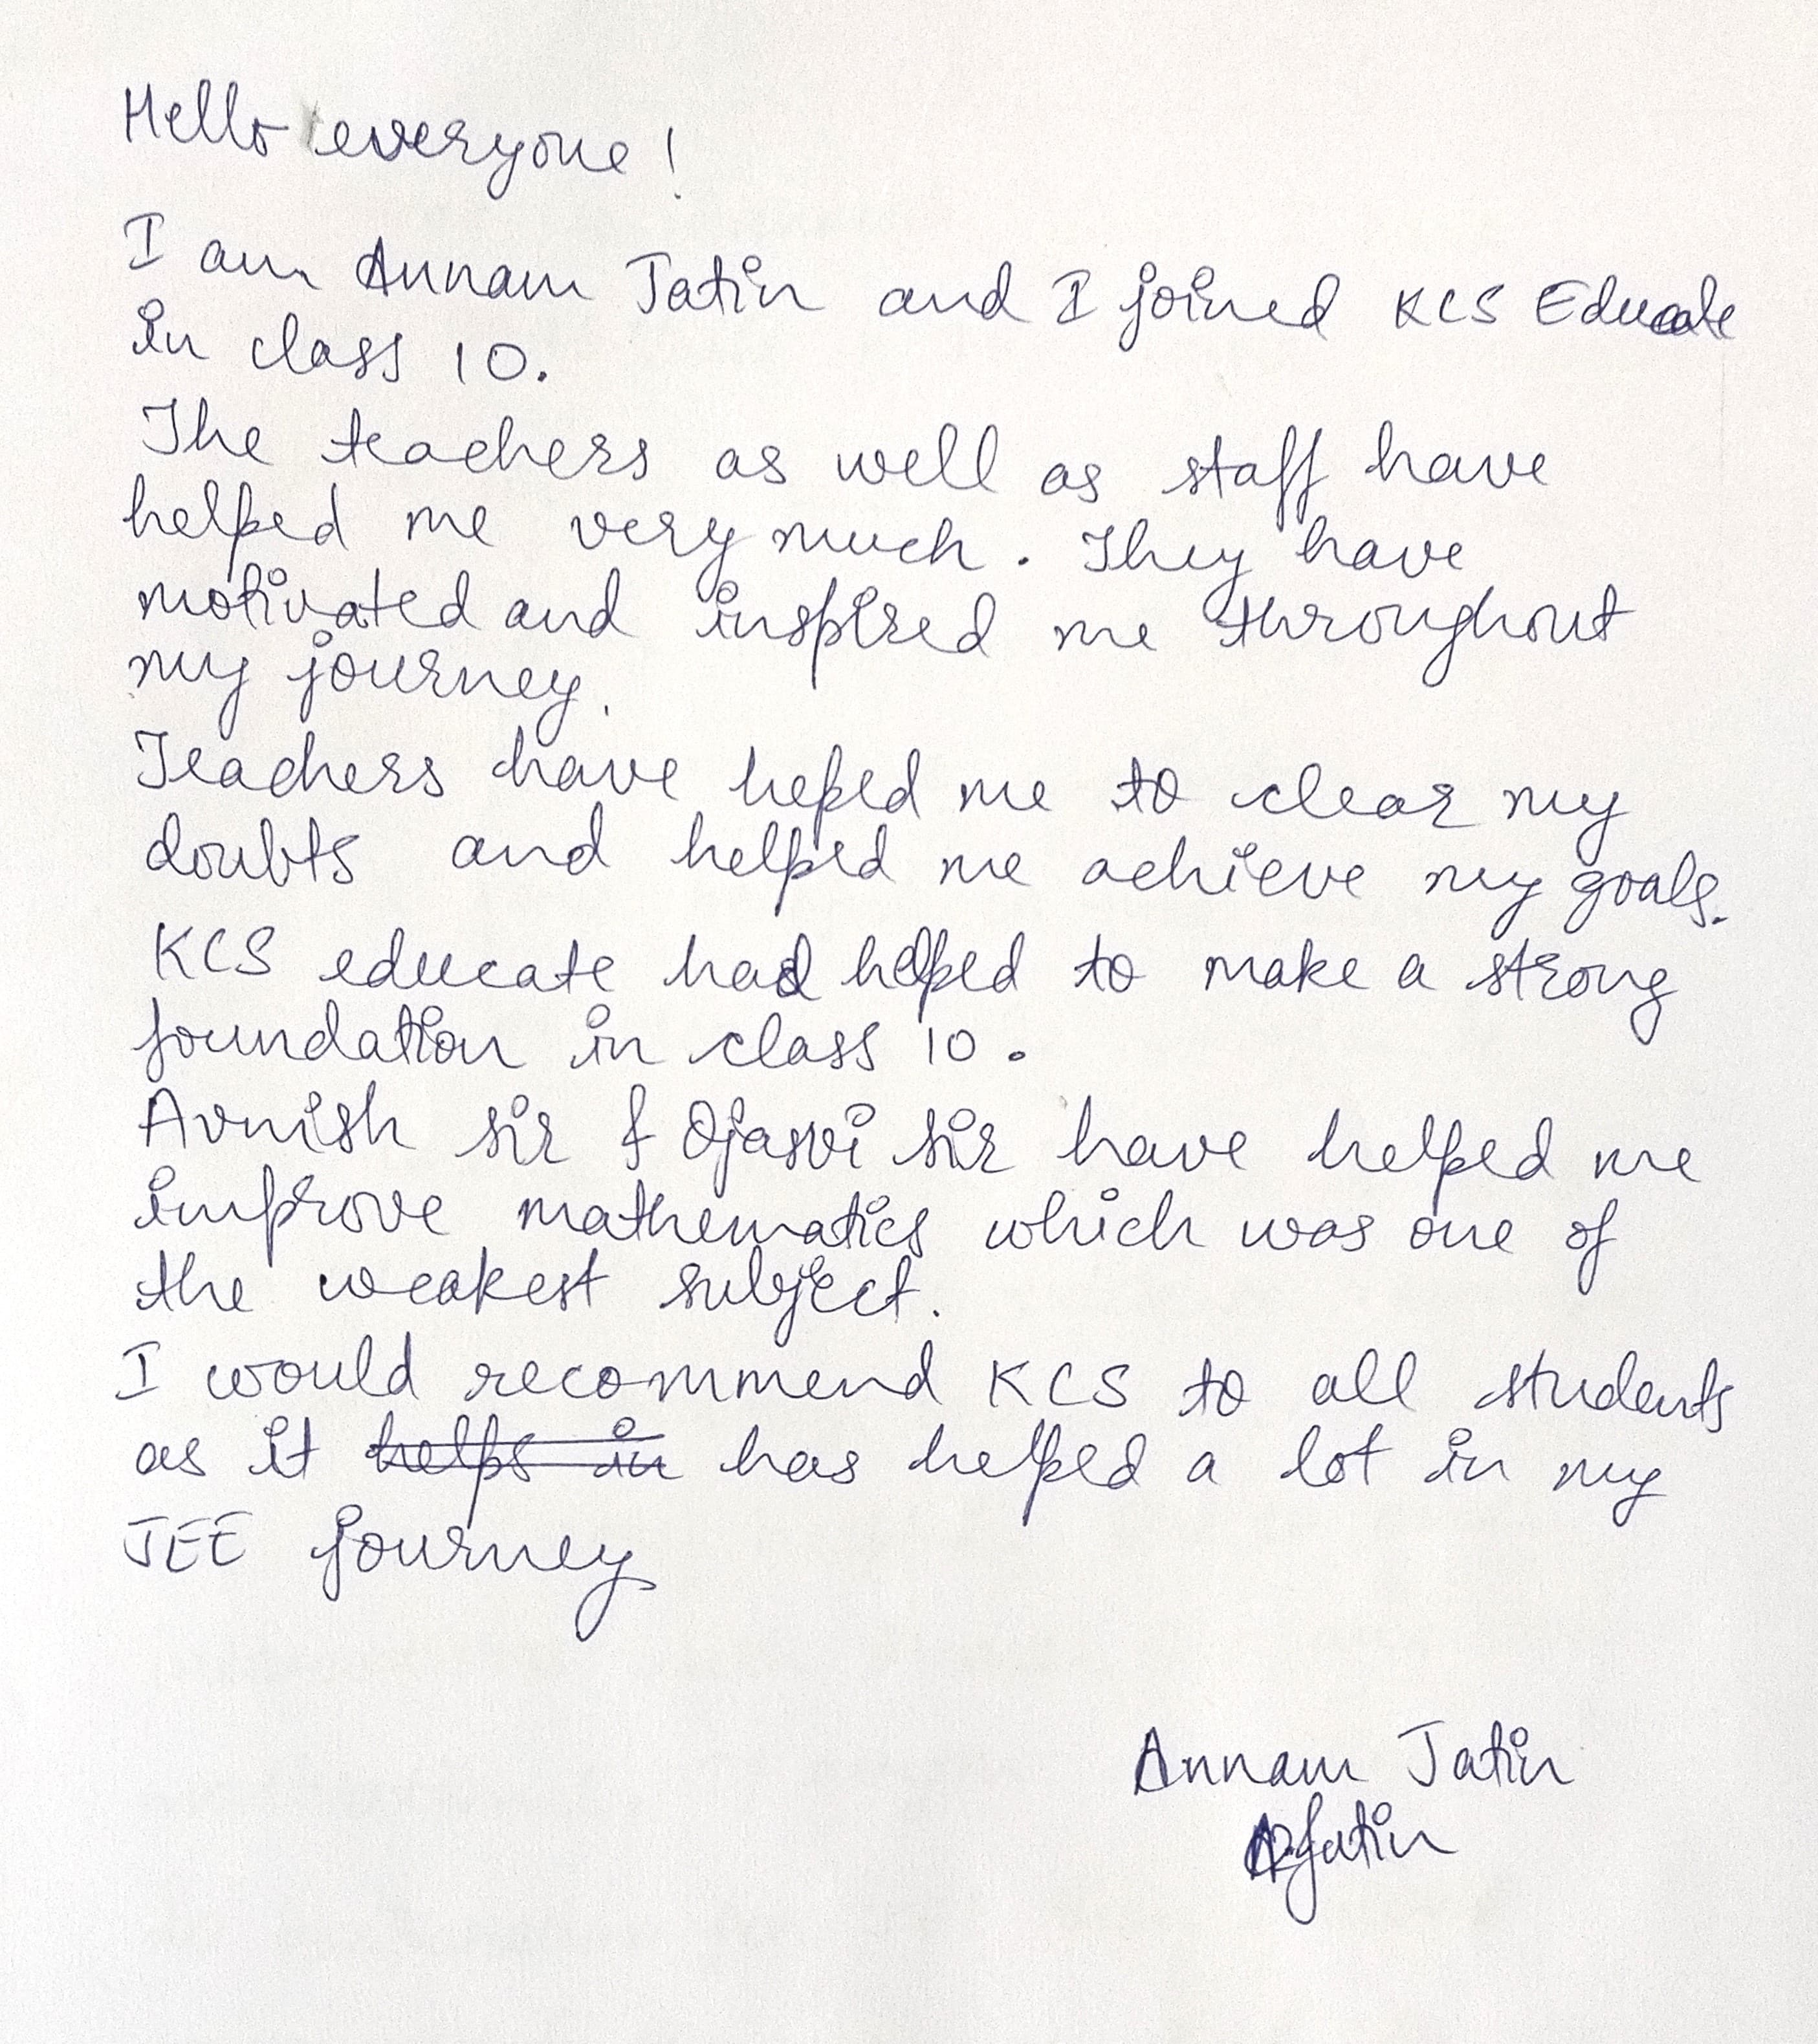 Hello everyone!
I am Annam Jatin and I joined KCS Educate
in class 10.
The teachers as well as staff have
helped me very much. They have
motivated and inspired me throughout
my journey.
Teachers have heped me to clear my
doubts and helped me achieve my goals.
KCS educate had helped to make a strong
foundation in class 10.
Avnish sir & Ojasvi sir have helped me
improve mathematics which was one of
the weakest subject.
I would recommend KCS to all students
as it helps in has helped a lot in my
JEE journey
Annam Jatin
A.Jatin